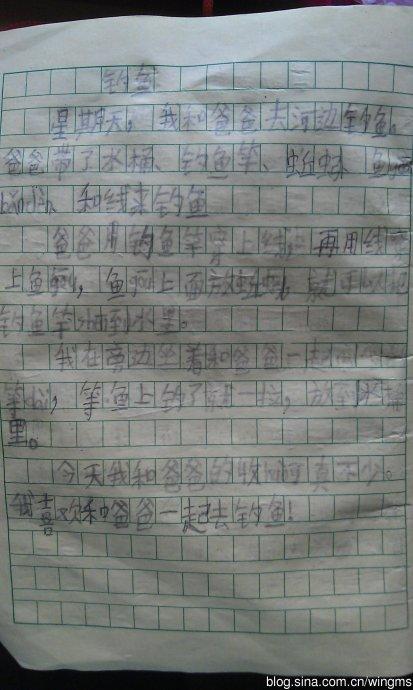 钓鱼
星期天，我和爸爸去河边钓鱼。
爸爸带了水桶、钓鱼竿、蚯蚓、鱼
bǎndèn、和线来钓鱼
爸爸用钓鱼竿穿上线，再用线
上鱼gōu，鱼gōu上面放蚯蚓，就可以把
钓鱼竿shuǎi到水里。
我在旁边坐着和爸爸一起
等dài，等鱼上钩了就一拉，放到水桶
里。
今天我和爸爸的收huò可真不少。
我喜欢和爸爸一起去钓鱼！
blog.sina.com.cn/wingms